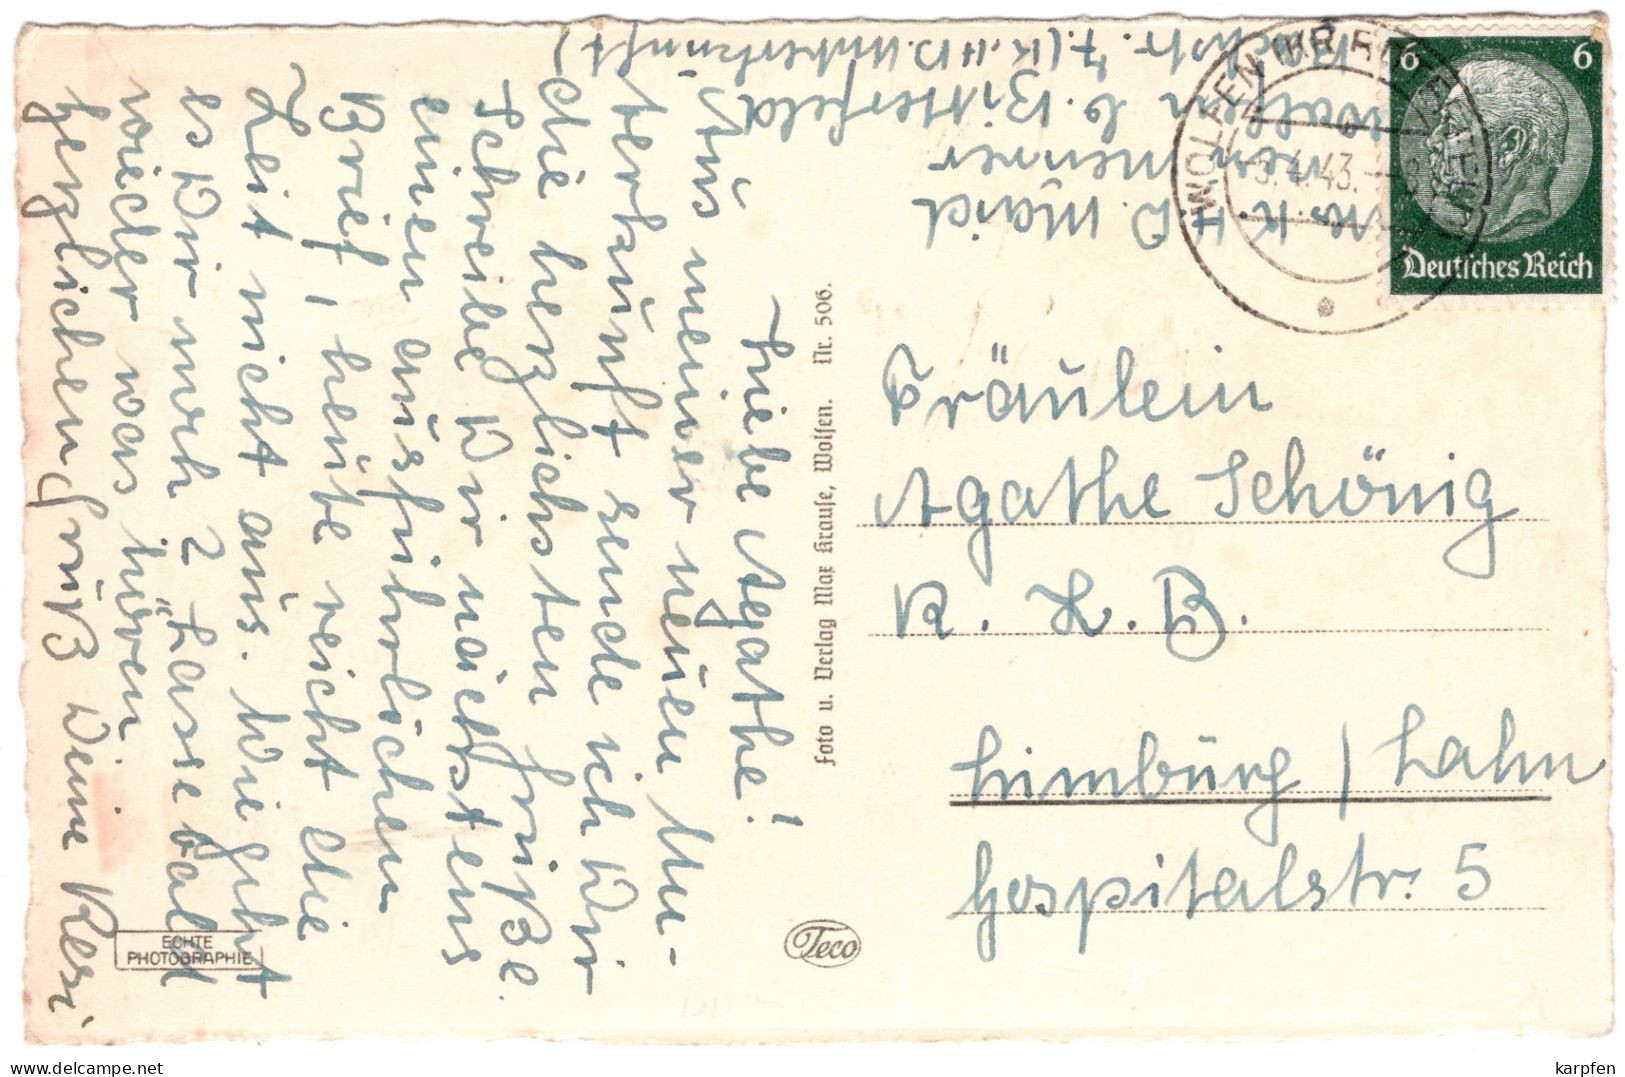 Liebe Agathe!
Aus meiner neuen Un-
terkunft sende ich Dir
die herzlichsten Grüße.
Schreibe Dir nächstens
einen ausführlichen
Brief, heute reicht die
Zeit nicht aus. Wie geht
es Dir noch? Lasse bald
wieder was hören.
Herzlichen Gruß Deine Resi
K.H.D. Maid
Wolfen b. Bitterfeld
7. (K.H.D. Unterkunft)
WOLFEN (KR BITTERFELD)
5.4.43.
6 6
Deutsches Reich
Foto u. Verlag Max Krause, Wolfen. Nr. 506.
Fräulein
Agathe Schönig
R. L. B.
Limburg / Lahn
Hospitalstr. 5
ECHTE
PHOTOGRAPHIE
Teco
delcampe.net
karpfen